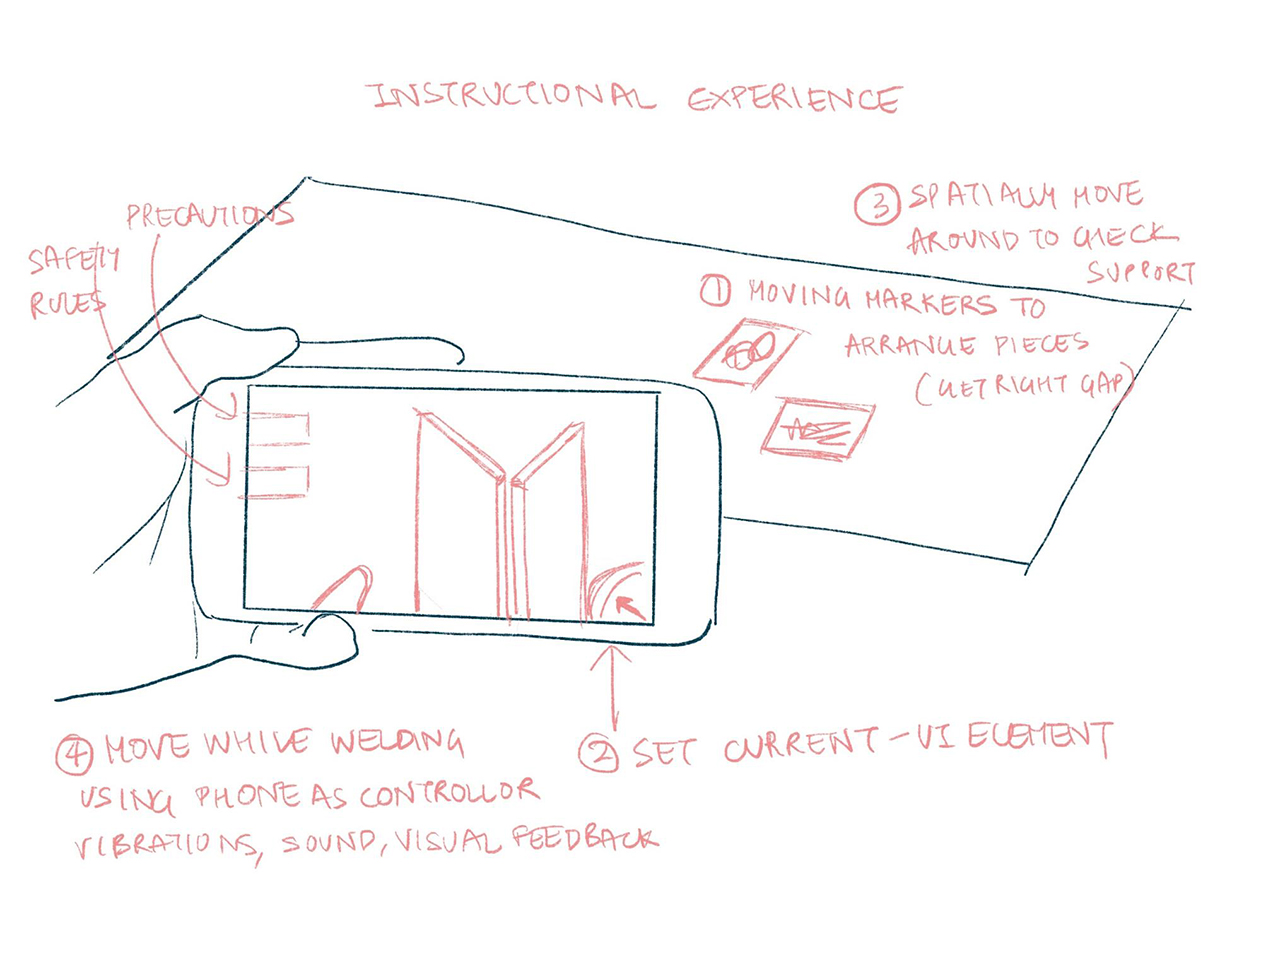 INSTRUCTIONAL EXPERIENCE
PRECAUTIONS
SAFETY
RULES
3 SPATIALLY MOVE
AROUND TO CHECK
SUPPORT
1 MOVING MARKERS TO
ARRANGE PIECES
(GET RIGHT GAP)
2 SET CURRENT-UI ELEMENT
4 MOVE WHILE WELDING
USING PHONE AS CONTROLLOR
VIBRATIONS, SOUND, VISUAL FEEDBACK